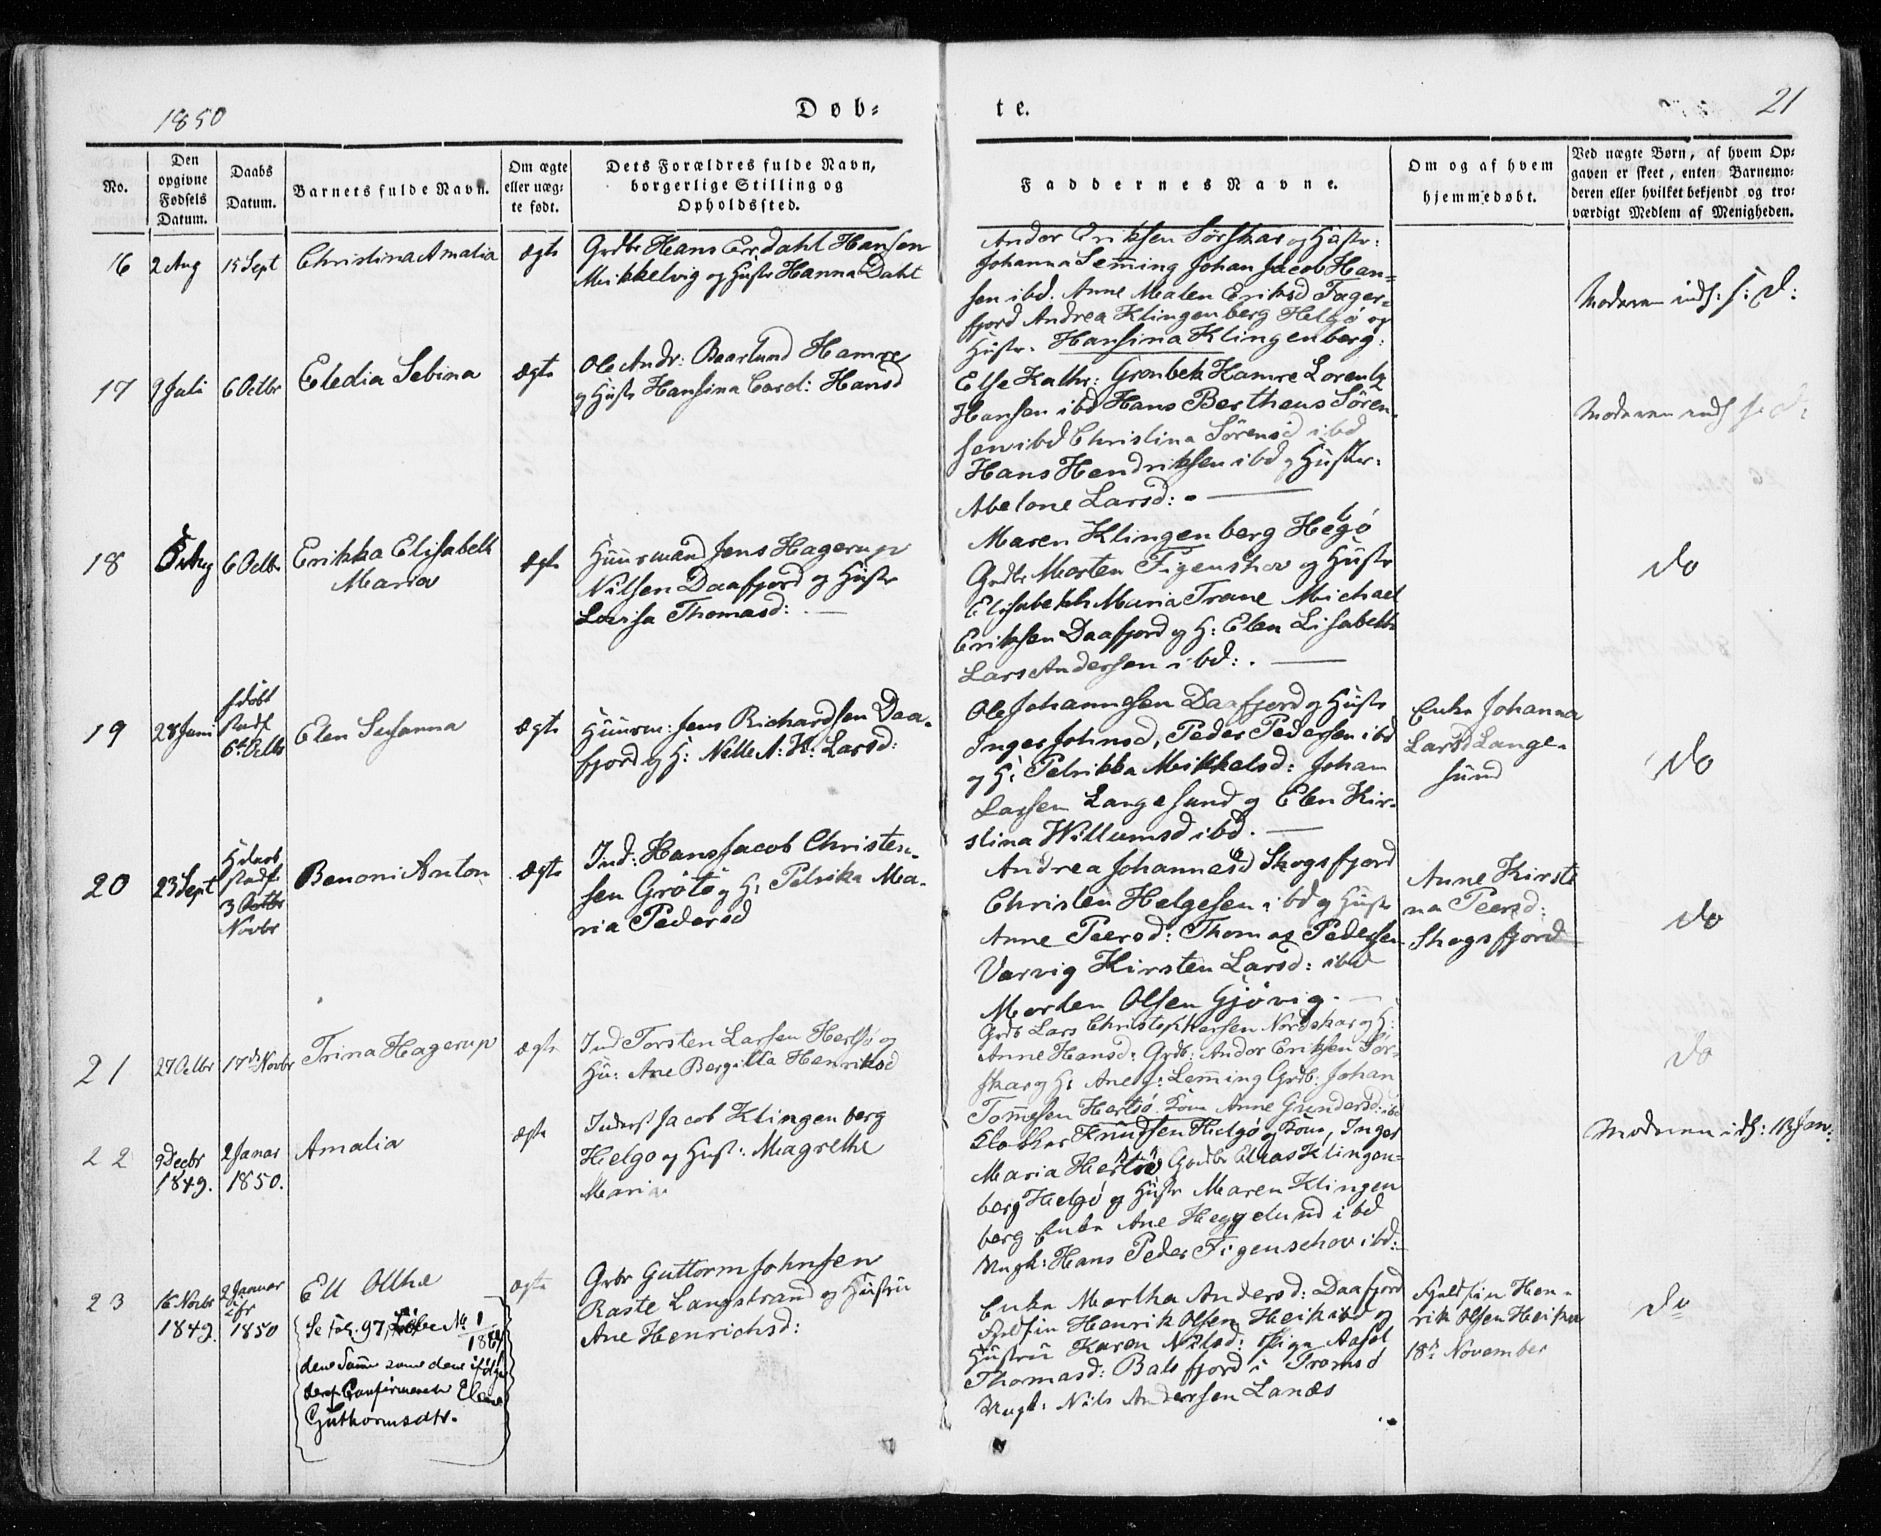 1850
Døb-
te.
21
No.
Den opgivne Fødsels Datum.
Daabs Datum.
Barnets fulde Navn.
Om ægte eller uæg-te født.
Dets Forældres fulde Navn, borgerlige Stilling og Opholdssted.
Faddernes Navne.
Om og af hvem hjemmedøbt.
Ved uægte Børn, af hvem Op-gaven er skeet, enten Barnemo-deren eller hvilket bekjendt og tro-værdigt Medlem af Menigheden.
16 2 Aug 15 Sept Christina Amalia ægte
Grdbr Hans Erdahl Hansen
Mikkelvig og Hustr Hanna Dahl
Andor Eriksen Sørskar og Hustr:
Johanna Leming Johan Jacob Han-
sen ibd. Anne Malen Eriksd Fager-
fjord Andrea Klingenberg Helgø og
Hustr. Hansina Klingenberg:
Moderen inds: s: D:
17 9 Juli 6 Octbr Eledia Sebina ægte
Ole Andr: Baarlund Hamre
og Hustr Hansina Carol: Hansd
Else Kathr: Grønbek Hamre Lorentz
Hansen ibd Hans Bertheus Søren-
sen ibd Christina Sørensd ibd
Hans Hendriksen ibd og Huster:
Abelone Larsd:
Moderen inds s: d:
18 Aug 6 Octbr Erikka Elisabeth
Maria
ægte
Huusmand Jens Hagerup
Nilsen Daafjord og Hustr
Lovisa Thomasd:
Maren Klingenberg Helgø
Grdbr Morten Figenshov og Hustr
Elisabeth Maria Trane Michael
Eriksen Daafjord og H: Elen Lisabeth
Lars Andersen ibd:
do
19 28 Juni
døbt
stadf
6te Octbr
Elen Susanna ægte
Huusm: Jens Richardsen Daa-
fjord og H: Nelle A: K: Larsd:
Ole Johannsen Daafjord og Hustr
Inger Johnsd, Peder Pedersen ibd
og H: Petrikka Mikkelsd: Johan
Larsen Langesund og Elen Kir-
stina Willumsd ibd.
Enke Johanna
Larsd Lange-
sund
do
20 23 Sept
Hdaab
stadf
3 Octbr
Novbr
Benoni Anton ægte
Ind: Hans Jacob Christen-
sen Grøtø og H: Petrika Ma-
ria Pedersd
Andrea Johannesd Skogsfjord
Christen Helgesen ibd og Hustr
Anne Peersd: Thomas Pedersen
Varvig Kirsten Larsd: ibd
Morten Olsen Gjøvig.
Anne Kirsti
na Peersd:
Skogsfjord
do
21 27 Octbr 17de Novbr Trina Hagerup ægte
Ind Torsten Larsen Hertsø og
Hu: Ane Bergitta Henriksd
Grdb Lars Christophersen Nordskar og H:
Anne Hansd: Grdb: Andor Eriksen Sør-
skar og H: Ane J: Leming Grdb: Johan
Tomesen Hertsø. Kone Anne Gundersd: ibd
do
22 9 Decbr
1849.
2 Januar
1850.
Amalia ægte
Inderst Jacob Klingenberg
Helgø og Hust: Magrethe
Maria
Knudsen Helgø og Kone, Inger
Maria Hertsø Gaardbr Claas Klingen-
berg Helgø og Hustr Maren Klingen
berg Enke Ane Heggelund ibd
Ungk: Hans Peder Figenschov ibd:
Moderen ids: 113 Jan:
23 16 Novbr
1849.
2 Januar
1850
Ell Olthe ægte
Se fol. 97, No 1
1864
den Samme som den ifølge
deraf Confirmerede Elene
Guthormsdtr.
Grbr Guttorm Johnsen
Raste Langstrand og Hustru
Ane Henrichsd:
Enke Martha Andersd: Daafjord
Fjeldfin Henrik Olsen Heika ibd og
Hustru Karen Nilsd: Pige Aasel
Thomasd: Balsfjord i Tromsø
Ungk: Nils Anderssen Lanæs
Fjeldfin Hen-
rik Olsen Heika
18de November
do